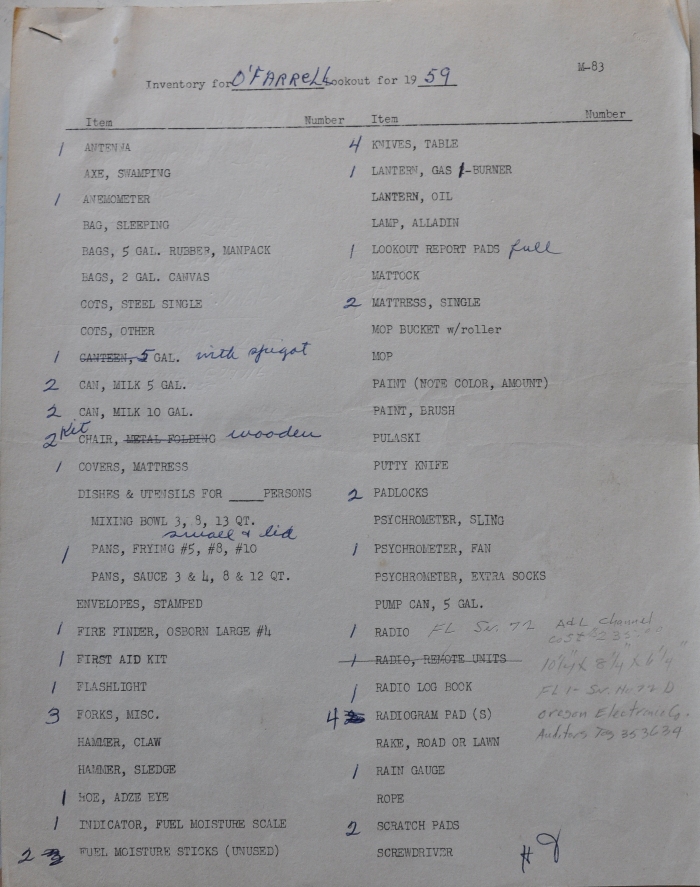 M-83
Inventory for O'FARRELL Lookout for 19 59
Item Number
1 ANTENNA
AXE, SWAMPING
1 ANEMOMETER
BAG, SLEEPING
BAGS, 5 GAL. RUBBER, MANPACK
BAGS, 2 GAL. CANVAS
COTS, STEEL SINGLE
COTS, OTHER
1 CANTEEN, 5 GAL. with spigot
2 CAN, MILK 5 GAL.
2 CAN, MILK 10 GAL.
2 Kit CHAIR, METAL FOLDING wooden
1 COVERS, MATTRESS
DISHES & UTENSILS FOR _____PERSONS
MIXING BOWL 3, 8, 13 QT.
small & lid
1 PANS, FRYING #5, #8, #10
PANS, SAUCE 3 & 4, 8 & 12 QT.
ENVELOPES, STAMPED
1 FIRE FINDER, OSBORN LARGE #4
1 FIRST AID KIT
1 FLASHLIGHT
3 FORKS, MISC.
HAMMER, CLAW
HAMMER, SLEDGE
1 HOE, ADZE EYE
1 INDICATOR, FUEL MOISTURE SCALE
2 FUEL MOISTURE STICKS (UNUSED)
Item Number
4 KNIVES, TABLE
1 LANTERN, GAS 1-BURNER
LANTERN, OIL
LAMP, ALLADIN
1 LOOKOUT REPORT PADS full
MATTOCK
2 MATTRESS, SINGLE
MOP BUCKET w/roller
MOP
PAINT (NOTE COLOR, AMOUNT)
PAINT, BRUSH
PULASKI
PUTTY KNIFE
2 PADLOCKS
PSYCHROMETER, SLING
1 PSYCHROMETER, FAN
PSYCHROMETER, EXTRA SOCKS
PUMP CAN, 5 GAL.
1 RADIO FL Ser. 72 Adl channel
cost $235.00
1 RADIO, REMOTE UNITS 10 1/4 X 8 1/4 X 6 1/4"
1 RADIO LOG BOOK FL 1- Ser. No 72 D
4 RADIOGRAM PAD (S) Oregon Electronic Co.
Auditors Tag 353639
RAKE, ROAD OR LAWN
1 RAIN GAUGE
ROPE
2 SCRATCH PADS
SCREWDRIVER